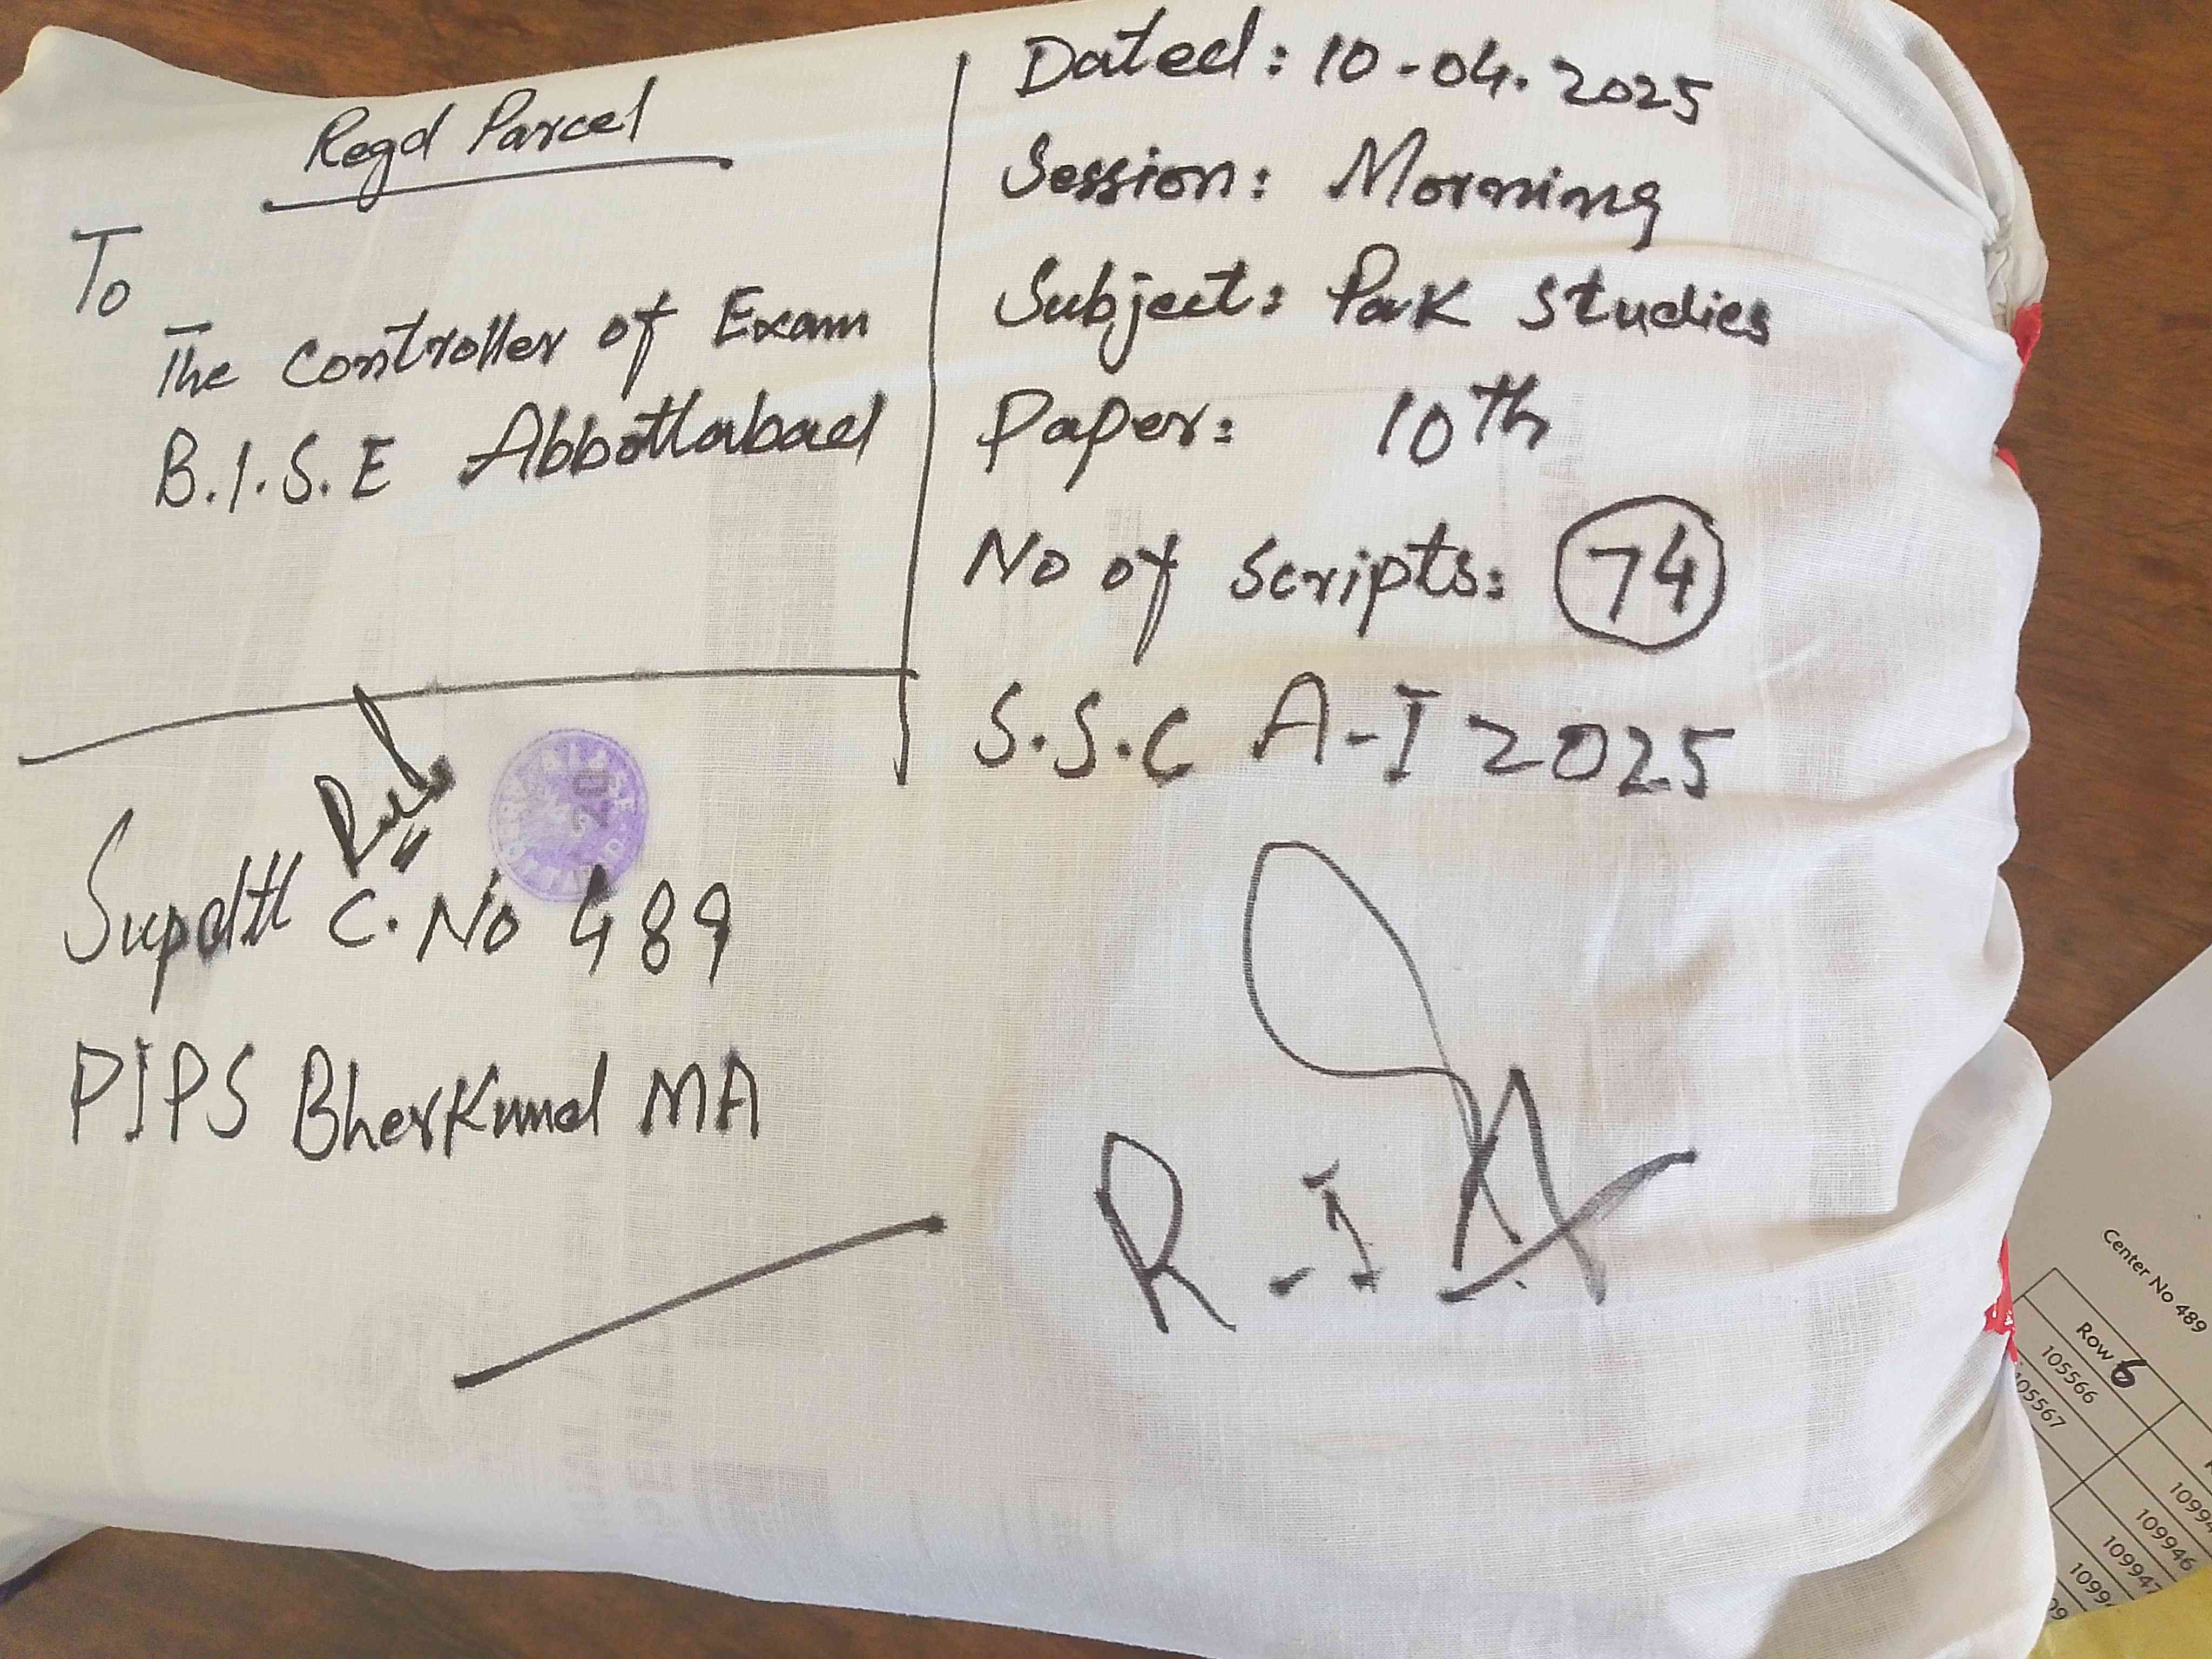 Regd Parcel
To
The Controller of Exam
B.I.S.E Abbottabad
Dated: 10-04-2025
Session: Morning
Subject: Pak Studies
Paper: 10th
No of Scripts: 74
S.S.C A-I 2025
Supdtt C. No 489
PIPS Bherkund MA
R-I
Center No 489
Row 6
105566
105567
109946
109947